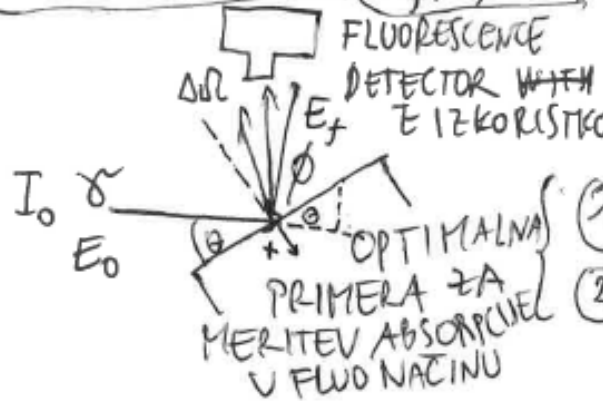 FLUORESCENCE
ΔΩ DETECTOR WITH
E_f E IZKORISTKO
ϕ
I₀ γ
θ θ
E₀ x
OPTIMALNA
PRIMERA ZA
MERITEV ABSORPCIJE
V FLUO NAČINU